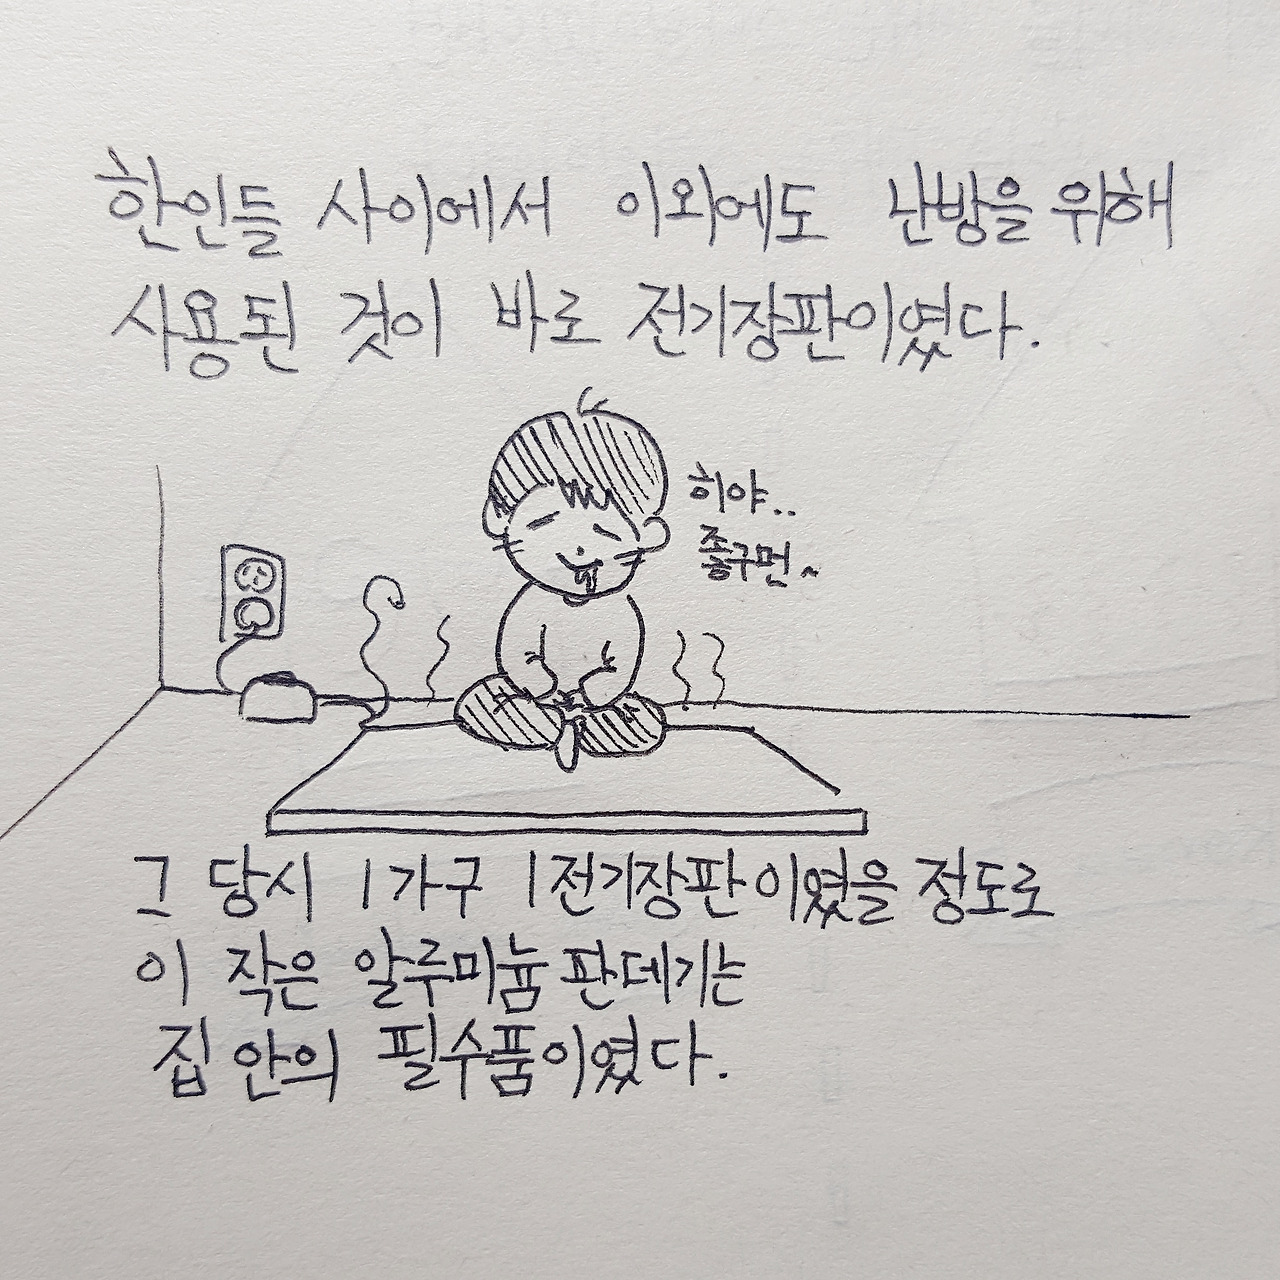 한인들 사이에서 이외에도 난방을 위해
사용된 것이 바로 전기장판이였다.
히야..
좋구먼~
그 당시 1가구 1전기장판이였을 정도로
이 작은 알루미늄 판데기는
집 안의 필수품이였다.